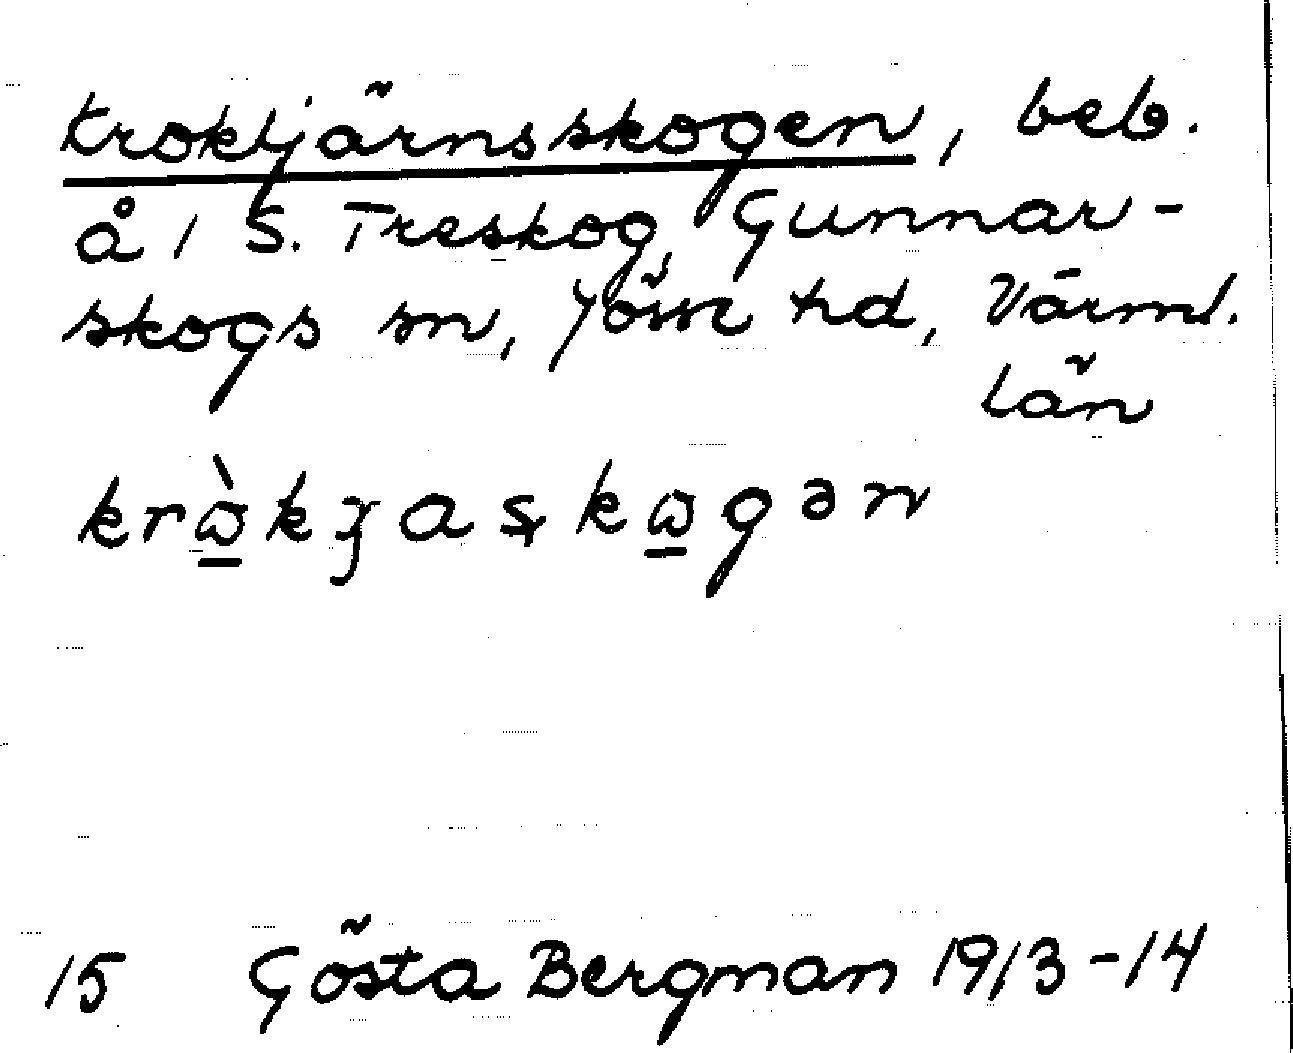 Kroktjärnsskogen, beb.
å 1 S. Treskog, Gunnar-
skogs sn, Jösse hd, Värml.
län
15 Gösta Bergman 1913-14